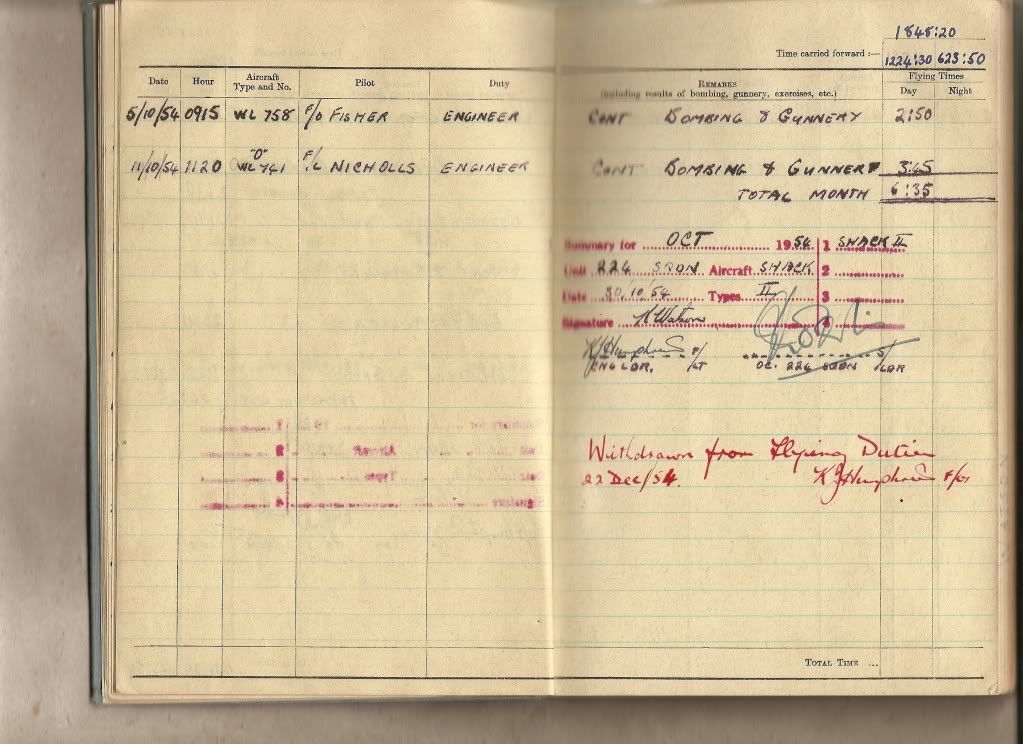 1848:20
Time carried forward :—
1224:30 623:50
Date Hour Aircraft Type and No. Pilot Duty
REMARKS
(including results of bombing, gunnery, exercises, etc.)
Flying Times
Day Night
5/10/54 0915 WL 758 F/O FISHER ENGINEER CONT BOMBING & GUNNERY 2:50
"O"
11/10/54 1120 WL 741 F/L NICHOLLS ENGINEER CONT BOMBING & GUNNERY 3:45
TOTAL MONTH 6:35
Summary for OCT 1954 1 SHACK II
Unit 224 SQDN Aircraft SHACK 2
Date 30/10/54 Types II 3
Signature K Watson 4
K J Humphries F/LT
ENG LDR. OC. 224 SQDN S/LDR
Withdrawn from Flying Duties
22 Dec/54. K J Humphries F/Lt
TOTAL TIME ...